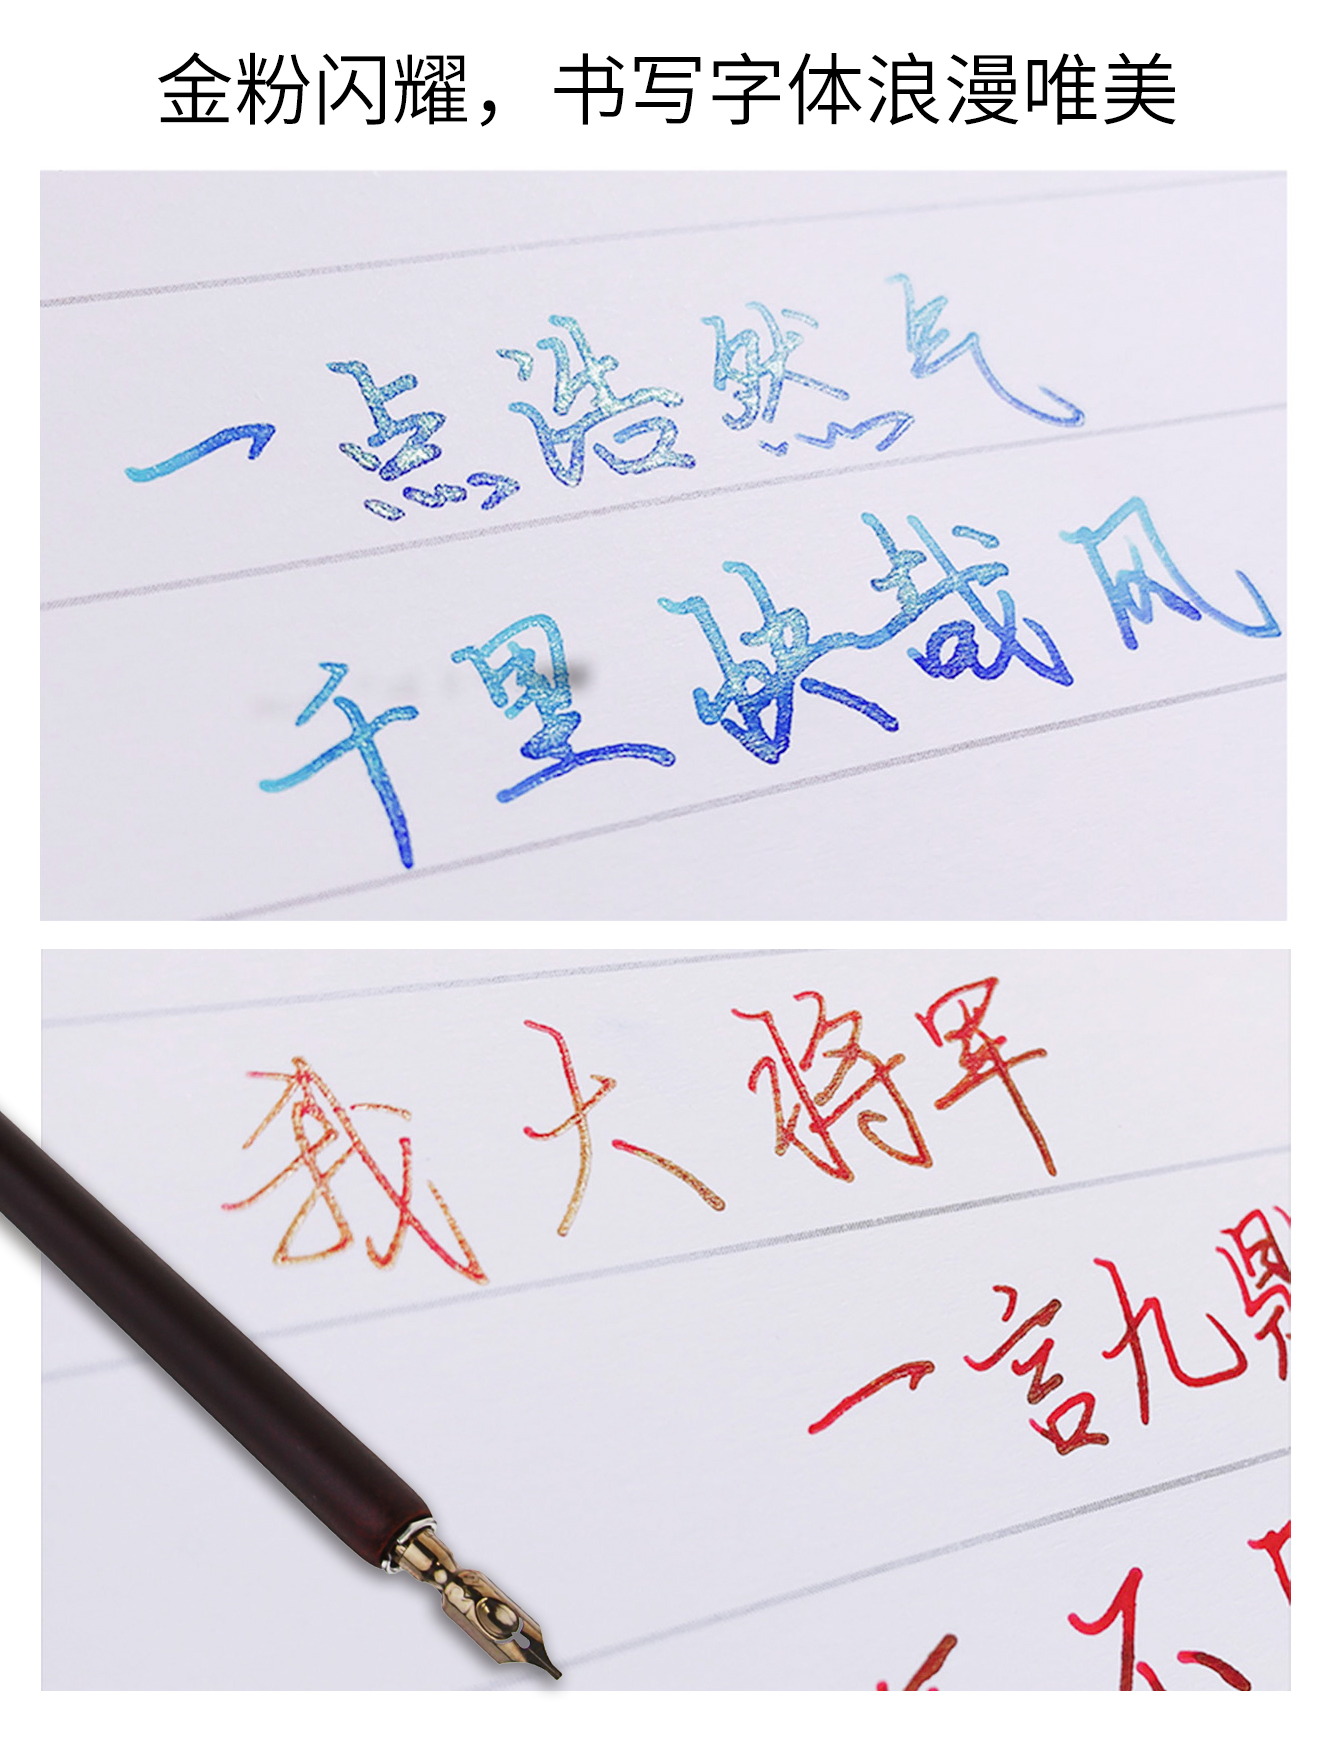 金粉闪耀，书写字体浪漫唯美
一点浩然气
千里快哉风
我大将军
一言九鼎
不